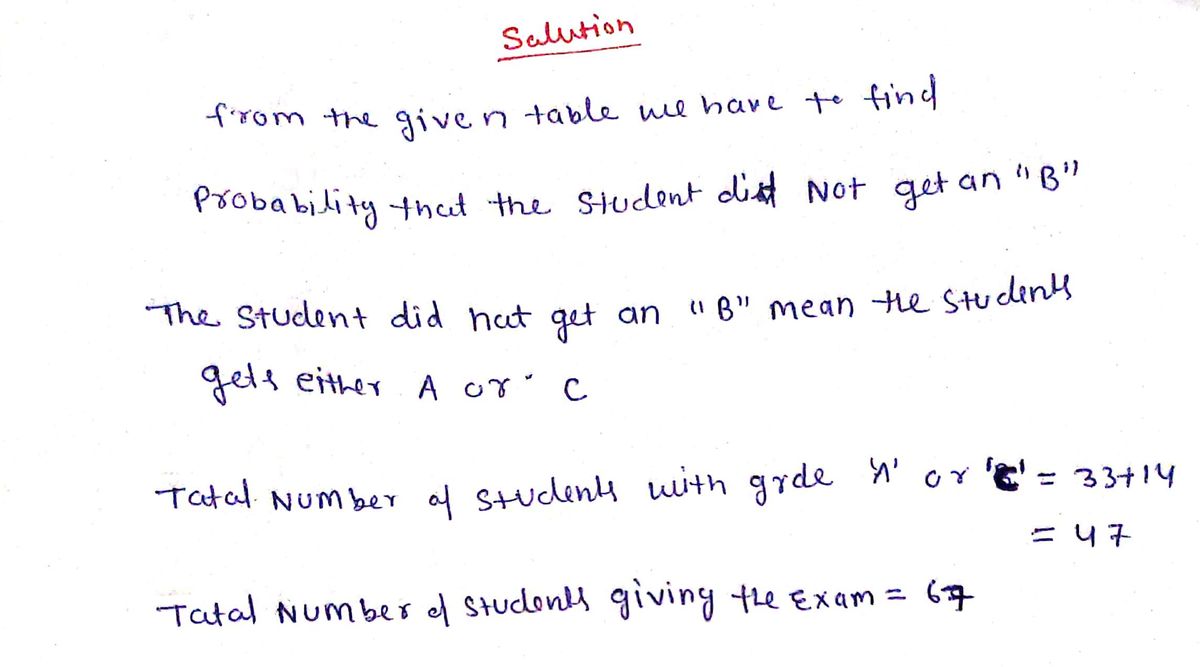 Salution
from the given table we have to find
Probability that the Student did Not get an "B"
The Student did nat get an "B" mean the Students
gets either A or C
Tatal Number of Students with grde 'A' or 'C' = 33+14
= 47
Tatal Number of Students giving the Exam = 67